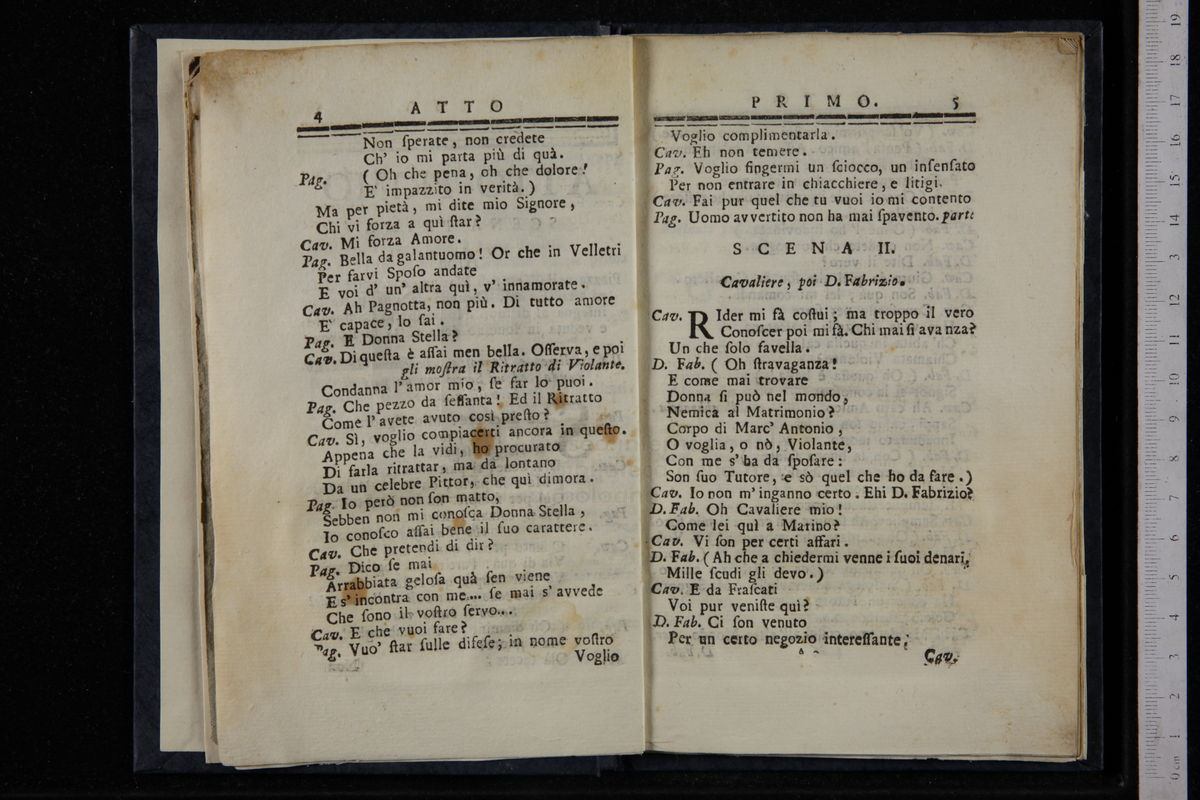 4 ATTO
Non ſperate, non credete
Ch' io mi parta più di quà.
Pag. ( Oh che pena, oh che dolore!
E' impazzito in verità. )
Ma per pietà, mi dite mio Signore,
Chi vi forza a quì ſtar?
Cav. Mi forza Amore.
Pag. Bella da galantuomo! Or che in Velletri
Per farvi Spoſo andate
E voi d' un' altra quì, v' innamorate.
Cav. Ah Pagnotta, non più. Di tutto amore
E' capace, lo ſai.
Pag. E Donna Stella?
Cav. Di queſta è aſſai men bella. Oſſerva, e poi
gli moſtra il Ritratto di Violante.
Condanna l' amor mio, ſe far lo puoi.
Pag. Che pezzo da ſeſſanta! Ed il Ritratto
Come l' avete avuto così preſto?
Cav. Sì, voglio compiacerti ancora in queſto.
Appena che la vidi, ho procurato
Di farla ritrattar, ma da lontano
Da un celebre Pittor, che quì dimora.
Pag. Io però non ſon matto,
Sebben non mi conoſca Donna Stella,
Io conoſco aſſai bene il ſuo carattere.
Cav. Che pretendi di dir?
Pag. Dico ſe mai
Arrabbiata geloſa quà ſen viene
E s' incontra con me... ſe mai s' avvede
Che ſono il voſtro ſervo...
Cav. E che vuoi fare?
Pag. Vuo' ſtar ſulle difeſe; in nome voſtro
Voglio
PRIMO. 5
Voglio complimentarla.
Cav. Eh non temere.
Pag. Voglio fingermi un ſciocco, un inſenſato
Per non entrare in chiacchiere, e litigi.
Cav. Fai pur quel che tu vuoi io mi contento
Pag. Uomo avvertito non ha mai ſpavento. parte
SCENA II.
Cavaliere, poi D. Fabrizio.
Cav. RIder mi fà coſtui; ma troppo il vero
Conoſcer poi mi fà. Chi mai ſi avanza?
Un che ſolo favella.
D. Fab. ( Oh ſtravaganza!
E come mai trovare
Donna ſi può nel mondo,
Nemica al Matrimonio?
Corpo di Marc' Antonio,
O voglia, o nò, Violante,
Con me s' ha da ſpoſare:
Son ſuo Tutore, e sò quel che ho da fare. )
Cav. Io non m' inganno certo. Ehi D. Fabrizio?
D. Fab. Oh Cavaliere mio!
Come lei quì a Marino?
Cav. Vi ſon per certi affari.
D. Fab. ( Ah che a chiedermi venne i ſuoi denari,
Mille ſcudi gli devo. )
Cav. E da Fraſcati
Voi pur veniſte quì?
D. Fab. Ci ſon venuto
Per un certo negozio intereſſante;
Cav.